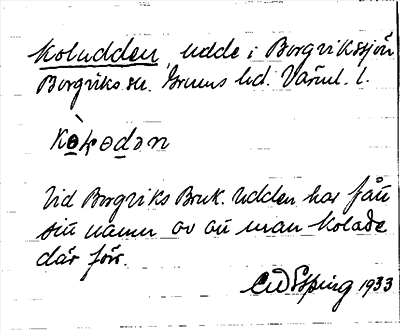 Koludden, udde i Borgvikssjön
Borgviks sn. Grums hd. Värml. l.
Vid Borgviks Bruk. Udden har fått
sitt namn av att man kolade
där förr.
1933